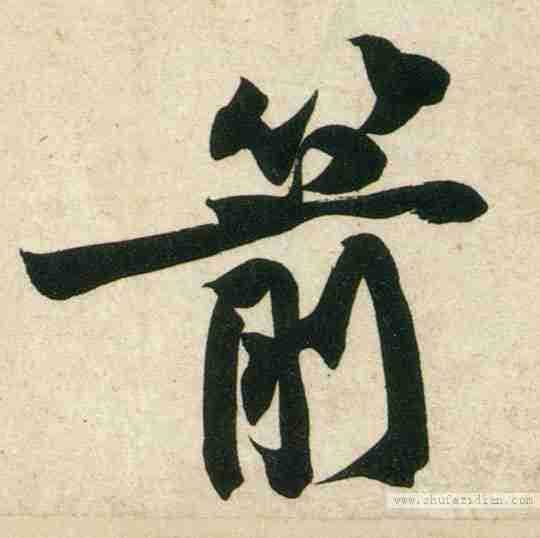 箭
www.shufazidian.com